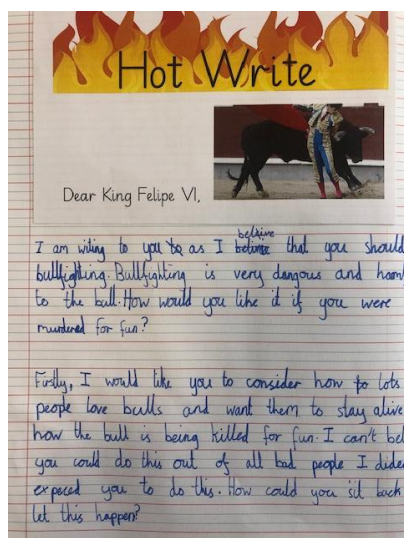 Hot Write
Dear King Felipe VI,
I am wiling to you to as I beleive that you should
bullfighting. Bullfighting is very dangous and harm
to the bull. How would you like it if you were
murdered for fun?
Firstly, I would like you to consider how to lots
people love bulls and want them to stay alive
how the bull is being killed for fun. I can't bel
you could do this out of all bad people I dident
expeced you to do this. How could you sit back
let this happen?